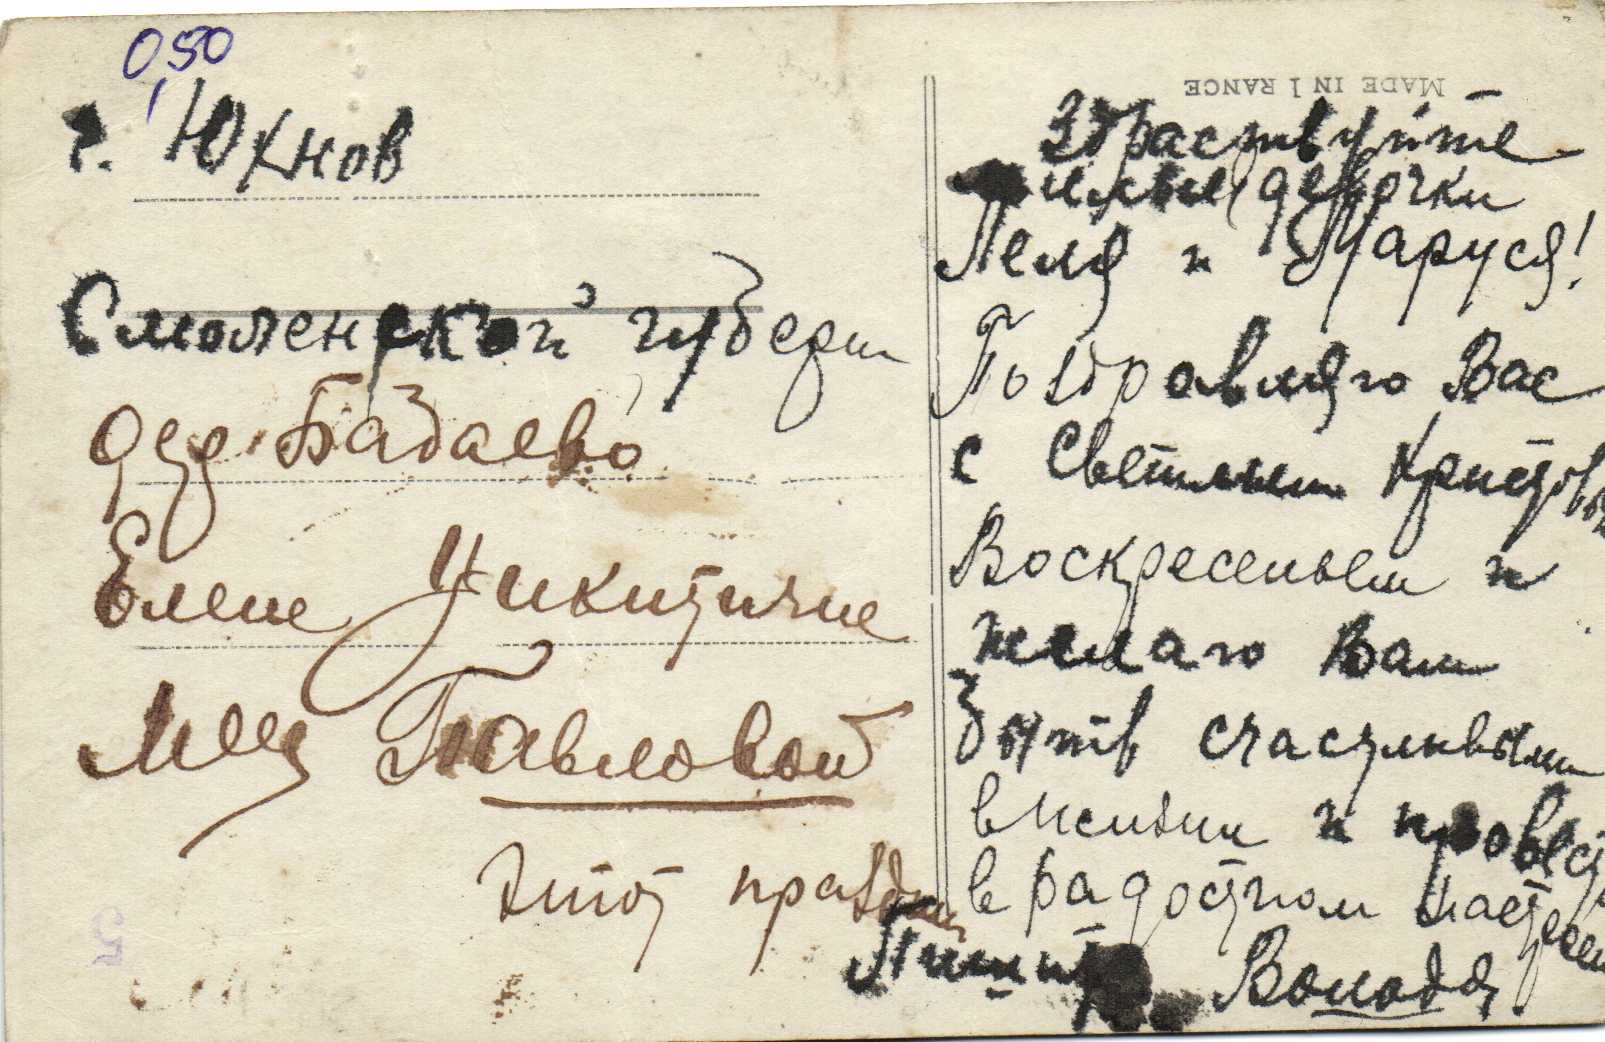 050
г. Юхнов
Смоленской губерн
дер. Бадаево
Елене Никитичне
Павловой
MADE IN FRANCE
Здраствуйте
милые девочки
Леля и Маруся!
Поздравляю Вас
с Светлым Христовым
Воскресеньем и
желаю Вам
быть счастливыми
в жизни и провести
этот праздник
в радостном настроении
Володя